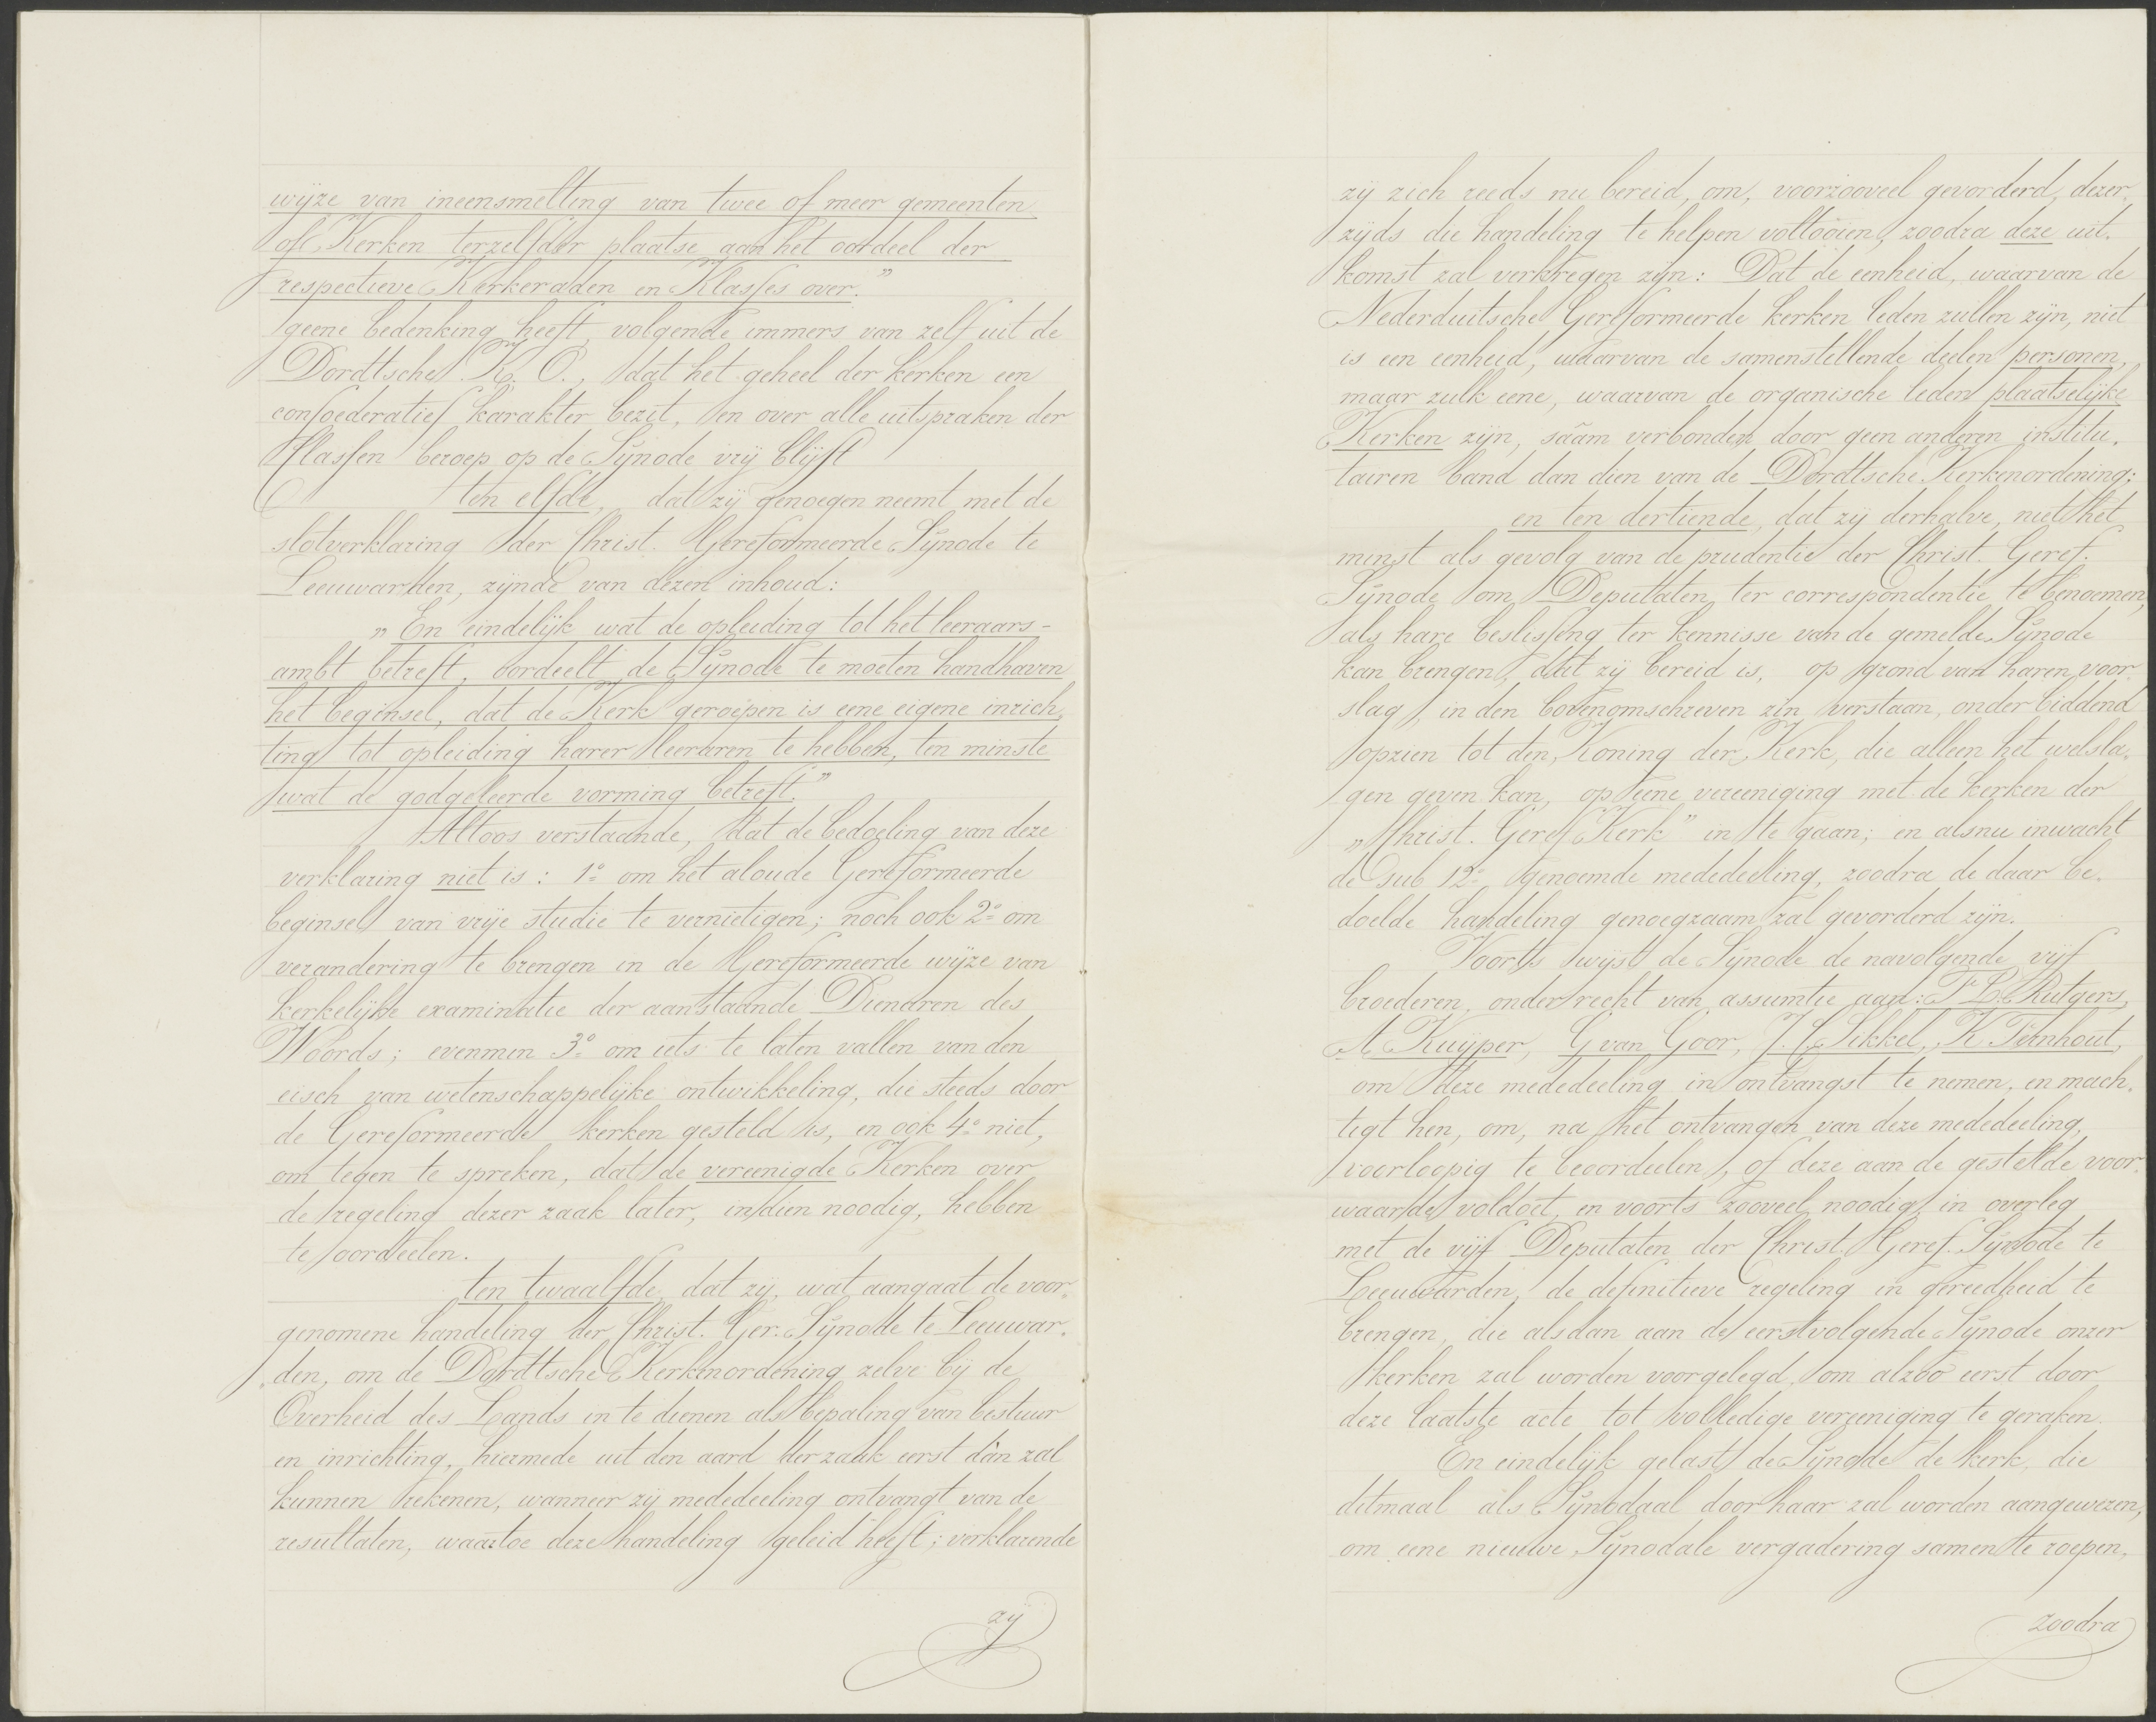 wijze van ineensmelting van twee of meer gemeenten
of Kerken terzelfder plaatse aan het oordeel der
respectieve Kerkeraden en Klasses over."
geene bedenking heeft, volgende immers van zelf uit de
Dordtsche K. O., dat het geheel der kerken een
confoederatief karakter bezit, en over alle uitspraken der
Classen beroep op de Synode vrij blijft
ten elfde, dat zij genoegen neemt met de
slotverklaring der Christ. Gereformeerde Synode te
Leeuwarden, zijnde van dezen inhoud:
„En eindelijk wat de opleiding tot het leeraars-
ambt betreft, oordeelt de Synode te moeten handhaven
het beginsel, dat de Kerk geroepen is eene eigene inrich„
ting tot opleiding harer leeraren te hebben, ten minste
wat de godgeleerde vorming betreft."
Altoos verstaande, dat de bedoeling van deze
verklaring niet is: 1º om het aloude Gereformeerde
beginsel van vrije studie te vernietigen; noch ook 2º om
verandering te brengen in de Gereformeerde wijze van
kerkelijke examinatie der aanstaande Dienaren des
Woords; evenmin 3º om iets te laten vallen van den
eisch van wetenschappelijke ontwikkeling, die steeds door
de Gereformeerde kerken gesteld is, en ook 4º niet,
om tegen te spreken, dat de vereenigde Kerken over
de regeling dezer zaak later, indien noodig, hebben
te oordeelen.
ten twaalfde, dat zij, wat aangaat de voor„
genomene handeling der Christ. Ger. Synode te Leeuwar„
den, om de Dordtsche Kerkenordening zelve bij de
Overheid des Lands in te dienen als bepaling van bestuur
en inrichting, hiermede uit den aard der zaak eerst dàn zal
kunnen rekenen, wanneer zij mededeeling ontvangt van de
resultaten, waartoe deze handeling geleid heeft; verklarende
zij
zij zich reeds nu bereid, om, voorzooveel gevorderd, dezer„
zijds die handeling te helpen voltooien, zoodra deze uit„
komst zal verkregen zijn: Dat de eenheid, waarvan de
Nederduitsche Gereformeerde kerken leden zullen zijn, niet
is een eenheid, waarvan de samenstellende deelen personen,
maar zulk eene, waarvan de organische leden plaatselijke
Kerken zijn, sâam verbonden door geen anderen institu„
tairen band dan dien van de Dordtsche Kerkenordening;
en ten dertiende, dat zij derhalve, niet het
minst als gevolg van de prudentie der Christ. Geref.
Synode om Deputaten ter correspondentie te benoemen,
als hare beslissing ter kennisse van de gemelde Synode
kan brengen, dat zij bereid is, op grond van haren voor„
slag, in den bovenomschreven zin verstaan, onder biddend
opzien tot den Koning der Kerk, die alleen het welsla„
gen geven kan, op eene vereeniging met de kerken der
„Christ. Geref. Kerk" in te gaan; en alsnu inwacht
de sub 12º genoemde mededeeling, zoodra de daar be„
doelde handeling genoegzaam zal gevorderd zijn.
Voorts wijst de Synode de navolgende vijf
broederen, onder recht van assumtie aan: F. L. Rutgers,
A. Kuijper, G van Goor, J. C. Sikkel, K. Fernhout,
om deze mededeeling in ontvangst te nemen, en mach„
tigt hen, om, na het ontvangen van deze mededeeling,
voorloopig te beoordeelen, of deze aan de gestelde voor„
waarde voldoet, en voorts zooveel noodig in overleg
met de vijf Deputaten der Christ. Geref. Synode te
Leeuwarden, de definitieve regeling in gereedheid te
brengen, die alsdan aan de eerstvolgende Synode onzer
kerken zal worden voorgelegd, om alzoo eerst door
deze laatste acte tot volledige vereeniging te geraken.
En eindelijk gelast de Synode de kerk, die
ditmaal als Synodaal door haar zal worden aangewezen,
om eene nieuwe Synodale vergadering samen te roepen,
zoodra